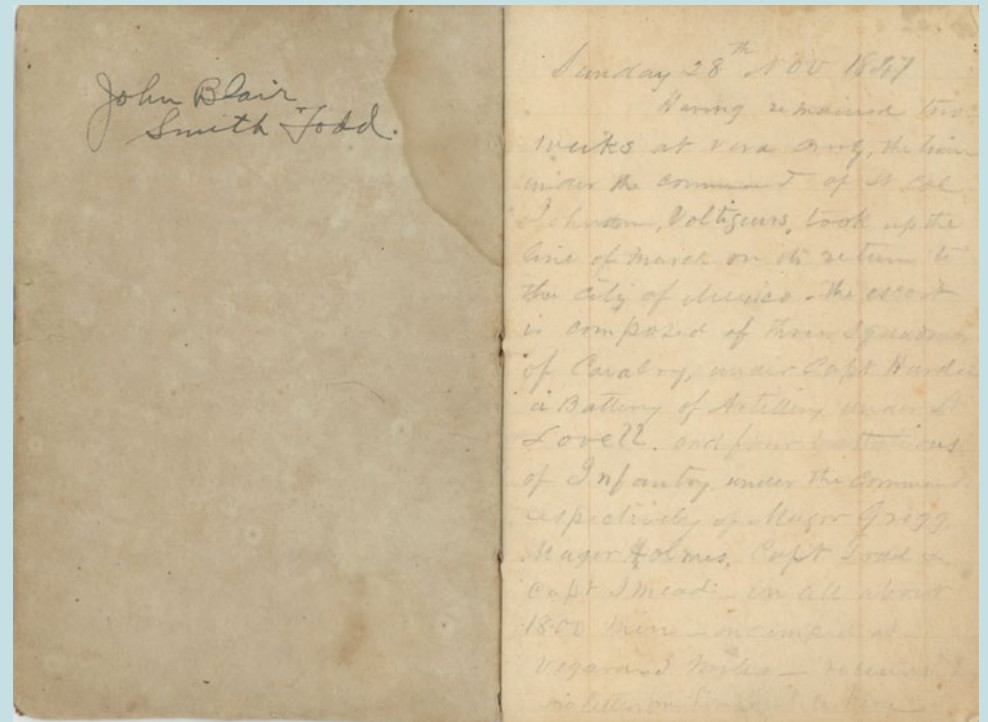 John Blair
Smith Todd.
Sunday 28th Nov 1847
Having remained two
weeks at Vera Cruz, the train
under the command of Lt Col
Johnston, Voltigeurs, took up the
line of march on its return to
the City of Mexico - the escort
is composed of three Squadrons
of Cavalry, under Capt Hardee
a Battery of Artillery under Lt
Lovell. and four battalions
of Infantry under the command
respectively of Major Gregg,
Major Holmes, Capt
Capt in all about
1800 men - encamped at